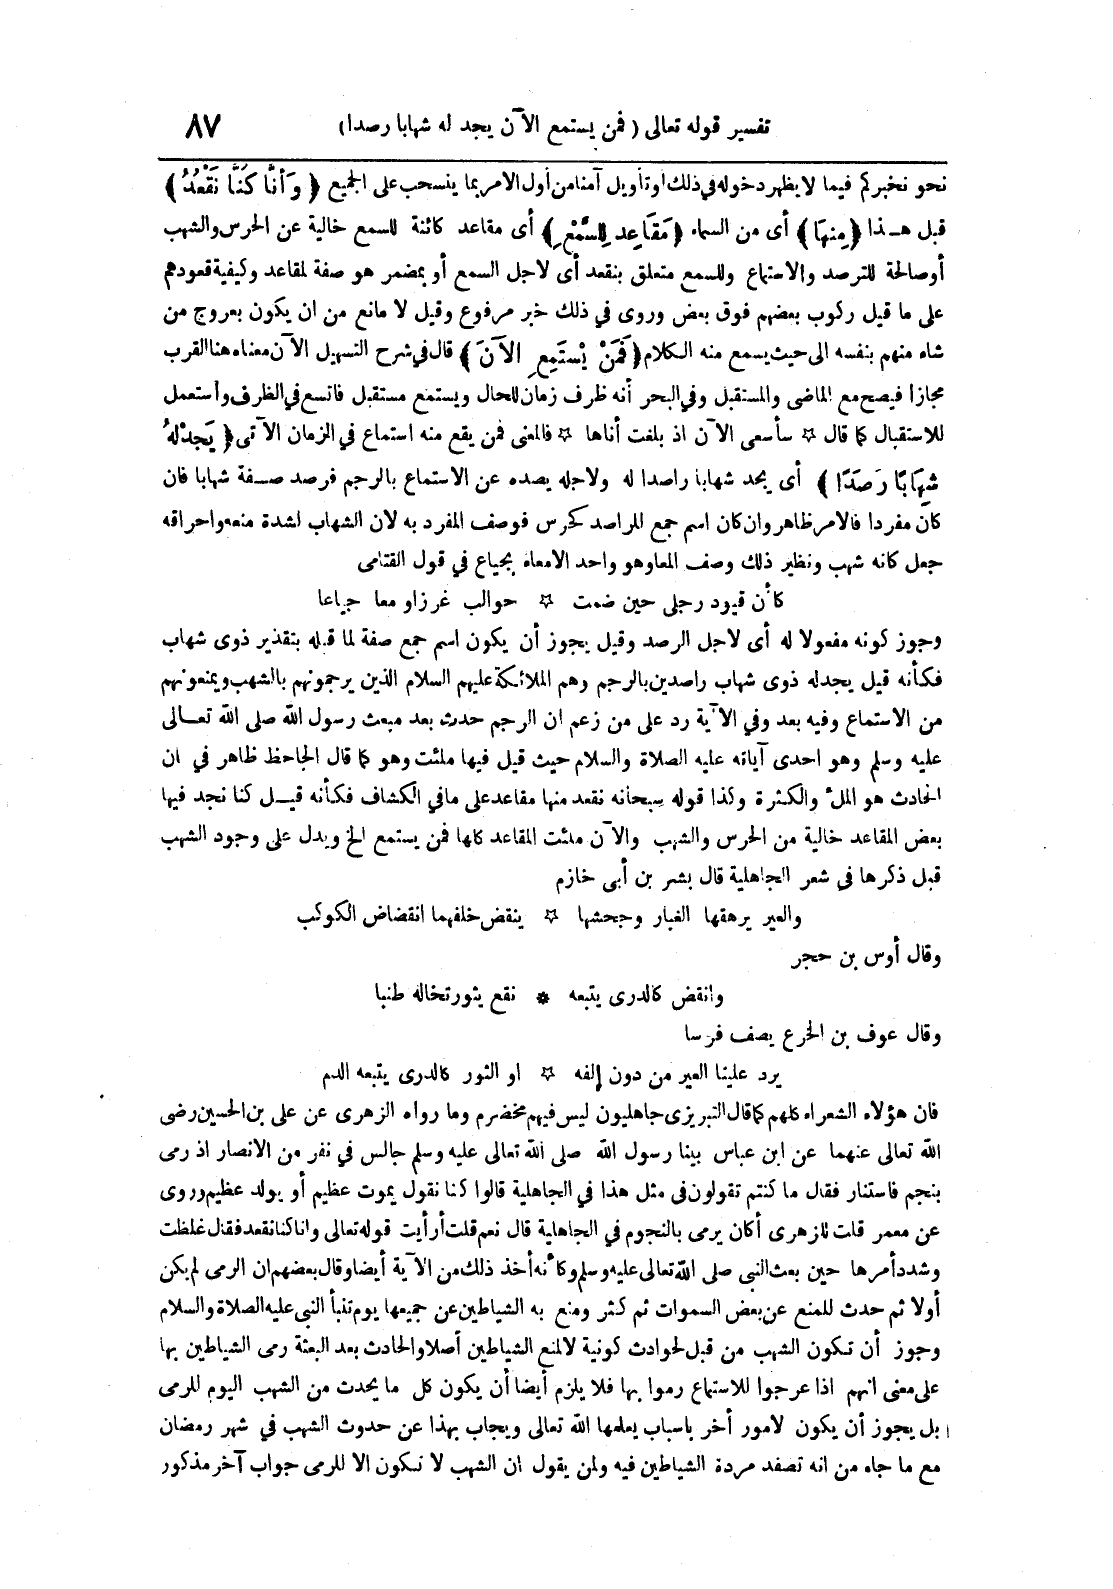 تفسير قوله تعالى ( فمن يستمع الآن يجد له شهابا رصدا) ٨٧
نحو نخبركم فيما لا يظهر دخوله في ذلك اوتأويل آمنا من أول الامر بما ينسحب على الجميع ﴿ وَأَنَّا كُنَّا نَقْعُدُ ﴾
قبل هـذا ﴿ مِنْهَا ﴾ أى من السماء ﴿ مَقَاعِدَ لِلسَّمْعِ ﴾ أى مقاعد كائنة للسمع خالية عن الحرس والشهب
أوصالحة للترصد والاستماع وللسمع متعلق بنقعد أى لاجل السمع أو بمضمر هو صفة لمقاعد وكيفية قعودهم
على ما قيل ركوب بعضهم فوق بعض وروى في ذلك خبر مرفوع وقيل لا مانع من ان يكون بعروج من
شاء منهم بنفسه الى حيث يسمع منه الكلام ﴿ فَمَنْ يَسْتَمِعِ الآنَ ﴾ قال في شرح التسهيل الآن معناه هنا القرب
مجازا فيصح مع الماضى والمستقبل وفي البحر أنه ظرف زمان للحال ويستمع مستقبل فاتسع في الظرف وأستعمل
للاستقبال كما قال ☆ سأسعى الآن اذ بلغت أناها ☆ فالمعنى فمن يقع منه استماع في الزمان الآتى ﴿ يَجِدْ لَهُ
شِهَابًا رَصَدًا ﴾ أى يجد شهابا راصدا له ولاجله يصده عن الاستماع بالرجم فرصد صـفة شهابا فان
كان مفردا فالامر ظاهر وان كان اسم جمع للراصد كحرس فوصف المفرد به لان الشهاب لشدة منعه واحراقه
جعل كانه شهب ونظير ذلك وصف المعا وهو واحد الامعاء بجياع في قول القتامى
كأن قيود رجلى حين ضمت ☆ حوالب غرزا و معا جياعا
وجوز كونه مفعولا له أى لاجل الرصد وقيل يجوز أن يكون اسم جمع صفة لما قبله بتقذير ذوى شهاب
فكأنه قيل يجد له ذوى شهاب راصدين بالرجم وهم الملائكة عليهم السلام الذين يرجمونهم بالشهب ويمنعونهم
من الاستماع وفيه بعد وفي الآية رد على من زعم ان الرجم حدث بعد مبعث رسول الله صلى الله تعـالى
عليه وسلم وهو احدى آياته عليه الصلاة والسلام حيث قيل فيها ملئت وهو كما قال الجاحظ ظاهر في ان
الحادث هو الملء والكثرة وكذا قوله سبحانه نقعد منها مقاعد على مافي الكشاف فكأنه قيـل كنا نجد فيها
بعض المقاعد خالية من الحرس والشهب والآن ملئت المقاعد كلها فمن يستمع الخ ويدل على وجود الشهب
قبل ذكرها في شعر الجاهلية قال بشر بن أبى خازم
والعير يرهقها الغبار وجحشها ☆ ينقض خلفهما انقضاض الكوكب
وقال أوس بن حجر
وانقض كالدرى يتبعه * نقع يثور تخاله طنبا
وقال عوف بن الخرع يصف فرسا
يرد علينا العير من دون إلفه ☆ او الثور كالدرى يتبعه الدم
فان هؤلاء الشعراء كلهم كما قال التبريزى جاهليون ليس فيهم مخضرم وما رواه الزهرى عن على بن الحسين رضى
الله تعالى عنهما عن ابن عباس بينا رسول الله صلى الله تعالى عليه وسلم جالس في نفر من الانصار اذ رمى
بنجم فاستنار فقال ما كنتم تقولون فى مثل هذا في الجاهلية قالوا كنا نقول يموت عظيم أو يولد عظيم وروى
عن معمر قلت للزهرى أكان يرمى بالنجوم في الجاهلية قال نعم قلت أرأيت قوله تعالى وانا كنا نقعد فقال غلظت
وشدد أمرها حين بعث النبي صلى الله تعالى عليه وسلم وكأنه أخذ ذلك من الآية أيضا وقال بعضهم ان الرمى لم يكن
أولا ثم حدث للمنع عن بعض السموات ثم كثر ومنع به الشياطين عن جميعها يوم تنبأ النبي عليه الصلاة والسلام
وجوز أن تكون الشهب من قبل لحوادث كونية لا لمنع الشياطين أصلا والحادث بعد البعثة رمى الشياطين بها
على معنى انهم اذا عرجوا للاستماع رموا بها فلا يلزم أيضا أن يكون كل ما يحدث من الشهب اليوم للرمى
بل يجوز أن يكون لامور أخر باسباب يعلمها الله تعالى ويجاب بهذا عن حدوث الشهب في شهر رمضان
مع ما جاء من انه تصفد مردة الشياطين فيه ولمن يقول ان الشهب لا تكون الا للرمى جواب آخر مذكور